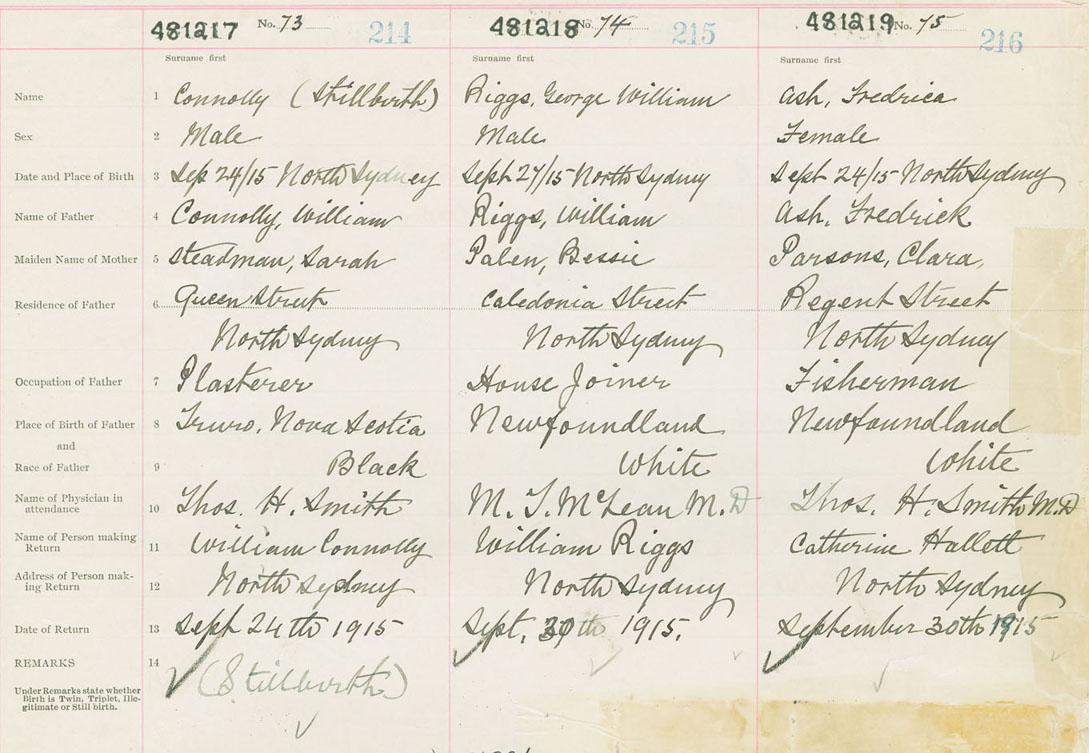 481217 No. 73 214 481218 No. 74 215 481219 No. 75 216
Surname first Surname first Surname first
Name 1 Connolly (Stillbirth) Riggs, George William Ash, Fredrica
Sex 2 Male Male Female
Date and Place of Birth 3 Sep 24/15 North Sydney Sept 27/15 North Sydney Sept 24/15 North Sydney
Name of Father 4 Connolly, William Riggs, William Ash, Fredrick
Maiden Name of Mother 5 Steadman, Sarah Palen, Bessie Parsons, Clara,
Residence of Father 6 Queen Street Caledonia Street Regent Street
North Sydney North Sydney North Sydney
Occupation of Father 7 Plasterer House Joiner Fisherman
Place of Birth of Father 8 Truro, Nova Scotia Newfoundland Newfoundland
and
Race of Father 9 Black White White
Name of Physician in
attendance 10 Thos. H. Smith M. T. McLean M.D Thos. H. Smith M.D
Name of Person making
Return 11 William Connolly William Riggs Catherine Hallett
Address of Person mak-
ing Return 12 North Sydney North Sydney North Sydney
Date of Return 13 Sept 24th 1915 Sept. 30th 1915. September 30th 1915
REMARKS 14 (Stillbirth)
Under Remarks state whether
Birth is Twin, Triplet, Ille-
gitimate or Still birth.